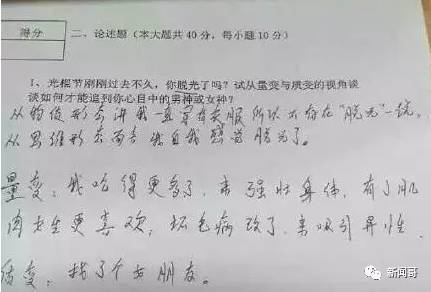 得分
二、论述题（本大题共40分，每小题10分）
1、光棍节刚刚过去不久，你脱光了吗？试从量变与质变的视角谈
谈如何才能追到你心目中的男神或女神？
从物质形态来讲我一直穿着衣服所以不存在“脱光”一说。
从思维形态而言我自我感觉脱光了。
量变：我吃得更多了，来强壮身体，有了肌
肉女生更喜欢，把毛病改了，来吸引异性。
质变：找了个女朋友。
新闻哥